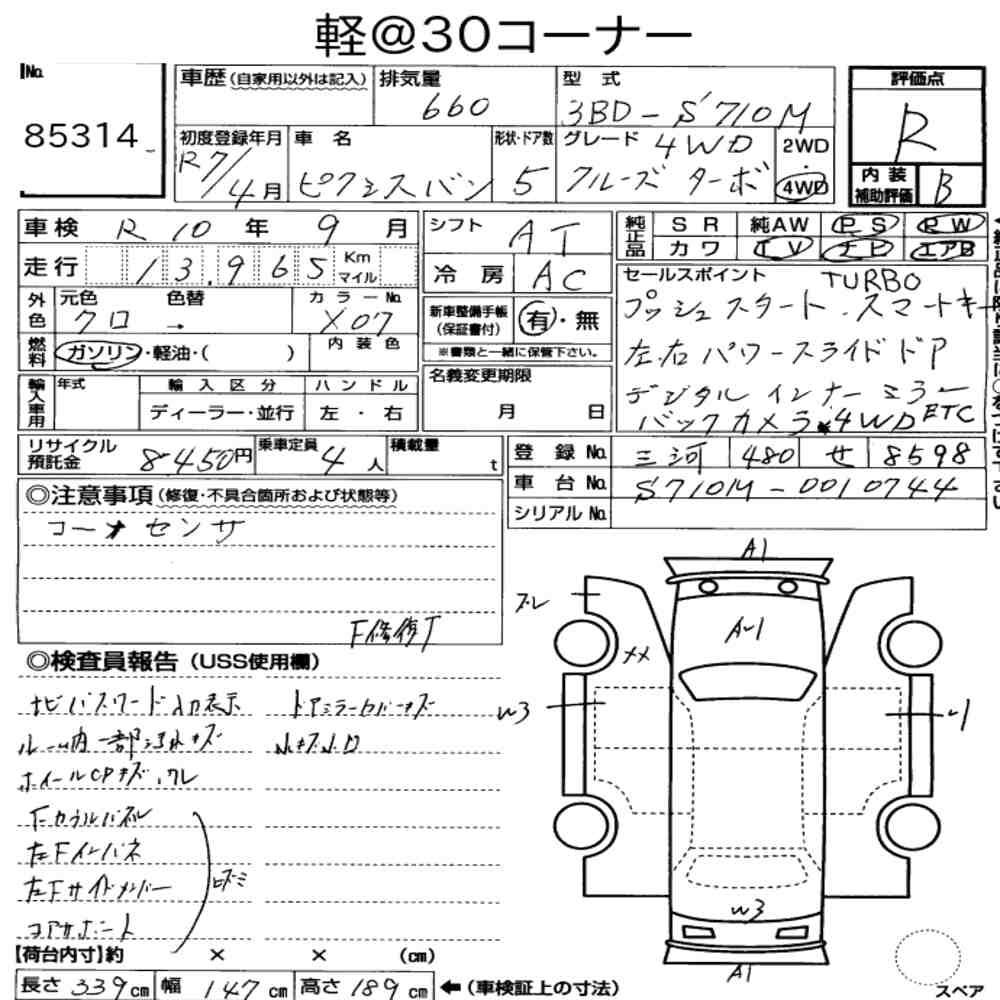 軽@30コーナー
No. 85314
車歴(自家用以外は記入)
排気量 660
型式 3BD-S710M
評価点 R
内装補助評価 B
初度登録年月 R7/4月
車名 ピクシスバン
形状・ドア数 5
グレード 4WD クルーズ ターボ
2WD 4WD
車検 R10年 9月
走行 13,965 Km マイル
外色 元色 クロ → 色替
カラーNo. X07
燃料 ガソリン・軽油・( )
内装色
輸入車用 年式
輸入区分 ディーラー・並行
ハンドル 左・右
シフト AT
冷房 AC
新車整備手帳(保証書付) 有・無
※書類と一緒に保管下さい。
名義変更期限 月 日
純正品 SR 純AW PS PW
カワ TV ナビ エアB
セールスポイント TURBO
プッシュスタート.スマートキー
左右パワースライドドア
デジタルインナーミラー
バックカメラ 4WD ETC
リサイクル預託金 8450円
乗車定員 4人
積載量 t
登録No. 三河 480 せ 8598
車台No. S710M-0010744
シリアルNo.
◎注意事項(修復・不具合箇所および状態等)
コーナーセンサ
F修復
◎検査員報告(USS使用欄)
ナビパスワード入力表示
ルーム内一部汚れキズ
ホイールCPキズ.ワレ
Fカウルパネル
左Fインパネ
左Fサイドメンバー
コアサポート
ドアミラーカバーキズ
A1
A-1
ズレ
XX
W3
W3
A1
【荷台内寸】約 × × (cm)
長さ339cm 幅147cm 高さ189cm ←(車検証上の寸法)
スペア